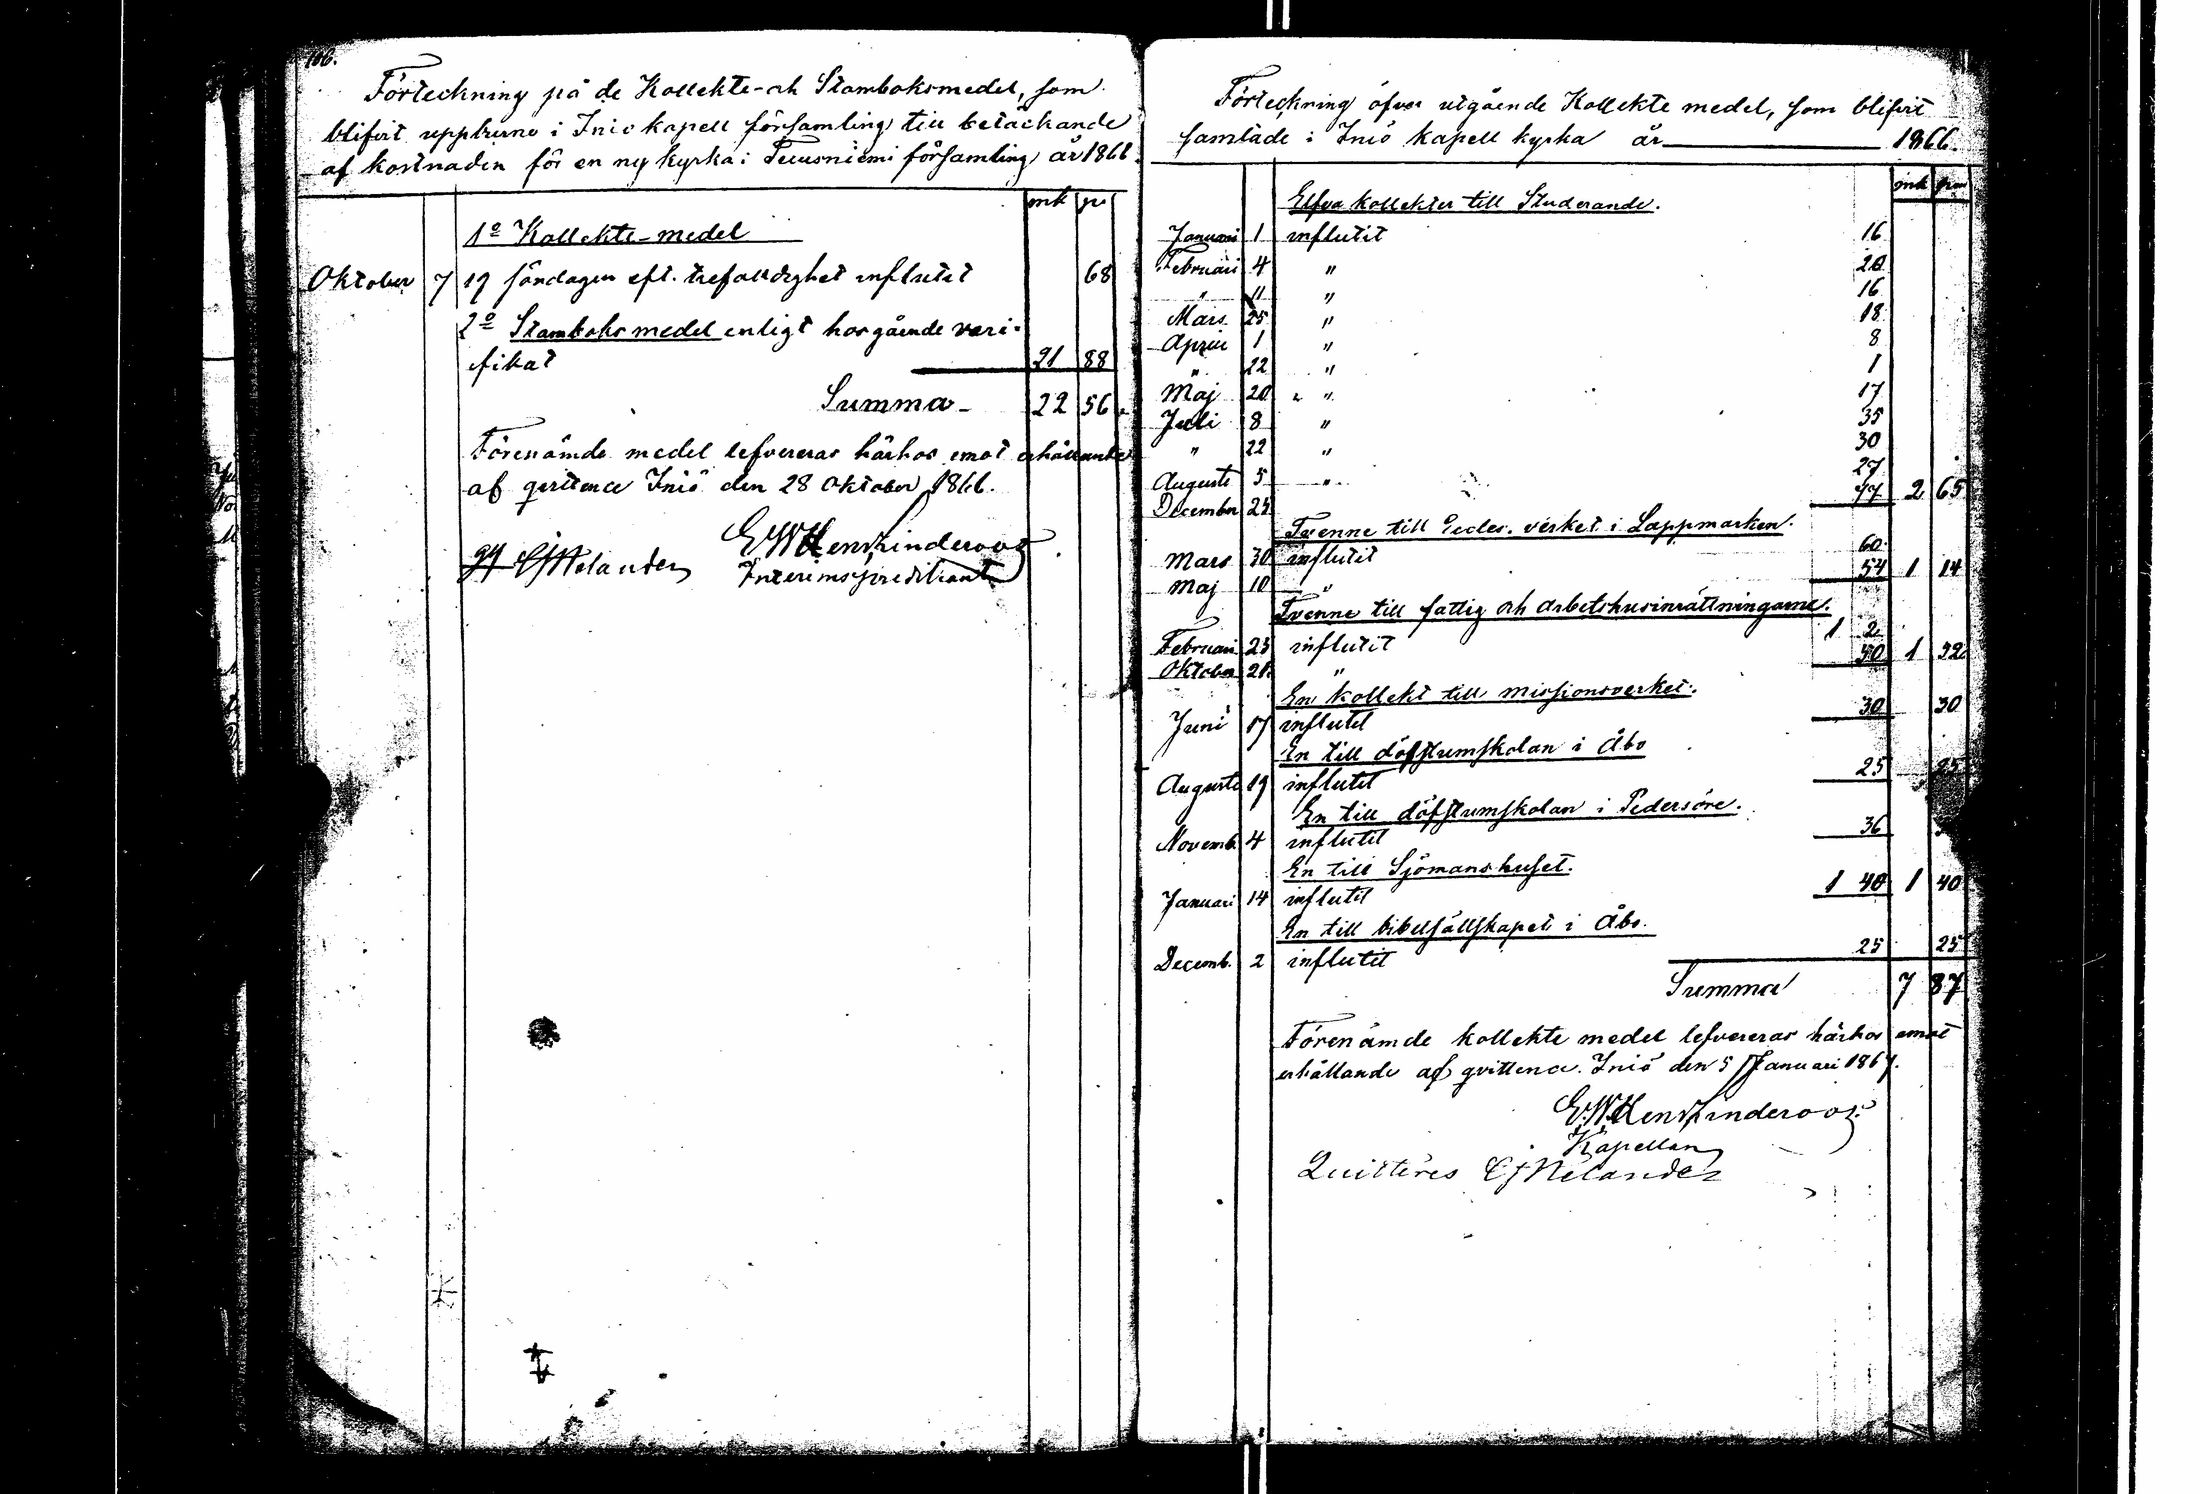 166.
Förteckning på de Kollekte- och Stamboksmedel, som
blifvit uppburne i Iniö kapell församling till betäckande
af kostnaden för en ny kyrka i församling år 1866.
mk pi
1o Kollekte-medel
Oktober 7 19 söndagen eft. trefaldighet influtit 68
2o Stamboksmedel enligt hosgående veri-
fikat 21 88
Summa 22 56.
Förenämde medel lefvereras härhos emot erhållande
af qvittence Iniö den 28 Oktober 1866.
EWHenr. Linderoos
Interimspredikant
Förteckning öfver utgående Kollekte medel, som blifvit
samlade i Iniö kapell kyrka år 1866.
mk pen
Elfva kollekter till Studerande.
Januari 1 influtit 16
Februari 4 " 20
" 11 " 16
Mars 25 " 18
April 1 " 8
" 22 " 1
Maj 20 " " 17
Juli 8 " 35
" 22 " 30
Augusti 5 " 27
December 25 77 2 65
Tvenne till Eccles. verket i Lappmarken.
Mars 30 influtit 60
Maj 10 " 54 1 14
Tvenne till fattig och arbetshusinrättningarne.
Februari 25 influtit 1 2
Oktober 21 " 50 1 52
En kollekt till missionsverket.
Juni 17 influtit 30 30
En till döfstumskolan i Åbo
Augusti 19 influtit 25 25
En till döfstumskolan i Pedersöre.
Novemb. 4 influtit 36
En till Sjömanshuset.
Januari 14 influtit 1 40 1 40
En till bibelsällskapet i Åbo.
Decemb. 2 influtit 25 25
Summa 7 87
Förenämde kollekte medel lefvereras härhos emot
erhållande af qvittence. Iniö den 5 Januari 1867.
EWHenr. Linderoos
Kapellan
Quitteres CJMelander